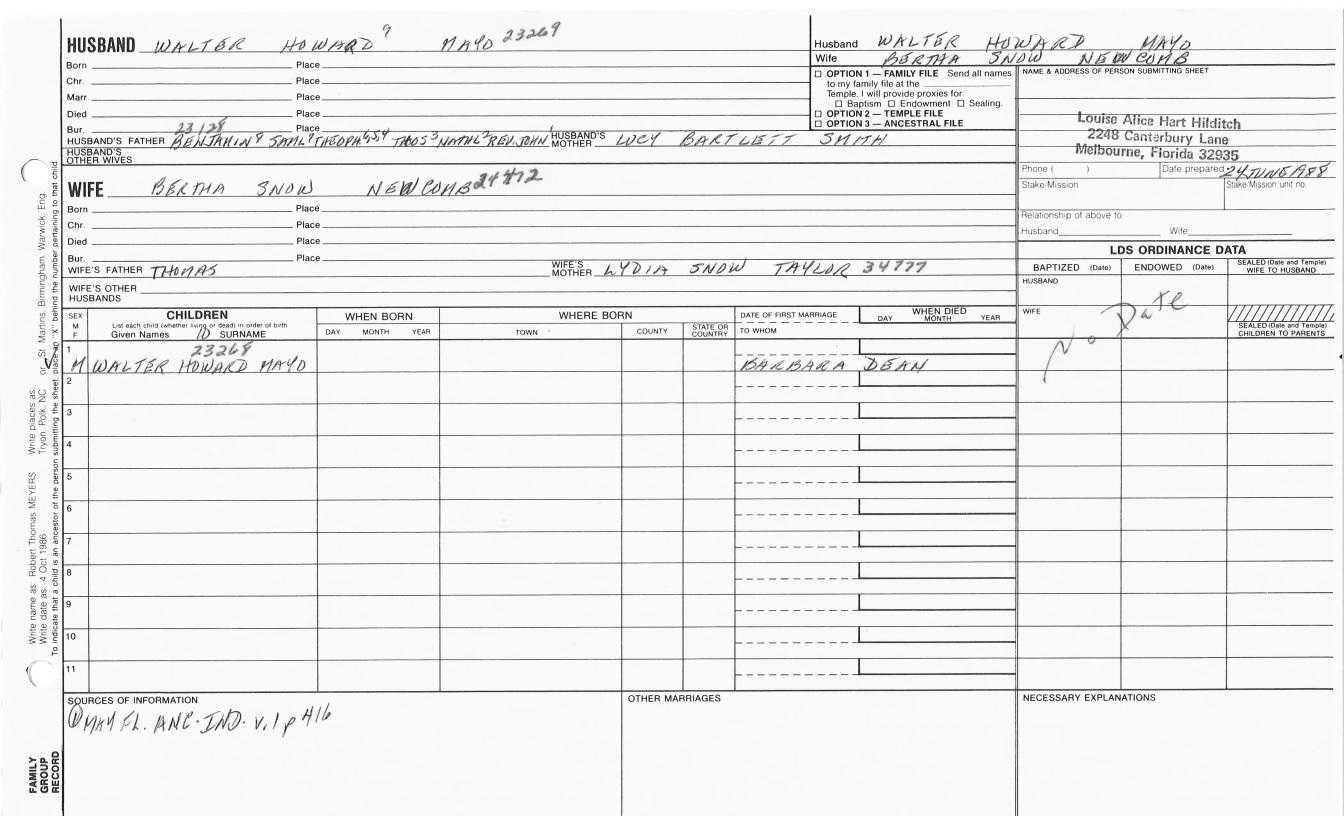 HUSBAND WALTER HOWARD 9 MAYO 23269
Born Place
Chr. Place
Marr. Place
Died Place
Bur. Place
23128
HUSBAND'S FATHER BENJAMIN 8 SAML 7 THEOPH 6,5,4 THOS 3 NATHL 2 REV. JOHN 1 HUSBAND'S MOTHER LUCY BARTLETT SMITH
HUSBAND'S OTHER WIVES
WIFE BERTHA SNOW NEWCOMB 24412
Born Place
Chr. Place
Died Place
Bur. Place
WIFE'S FATHER THOMAS WIFE'S MOTHER LYDIA SNOW TAYLOR 34777
WIFE'S OTHER HUSBANDS
Husband WALTER HOWARD MAYO
Wife BERTHA SNOW NEWCOMB
☐ OPTION 1 — FAMILY FILE Send all names
to my family file at the
Temple. I will provide proxies for:
☐ Baptism ☐ Endowment ☐ Sealing.
☐ OPTION 2 — TEMPLE FILE
☐ OPTION 3 — ANCESTRAL FILE
NAME & ADDRESS OF PERSON SUBMITTING SHEET
Louise Alice Hart Hilditch
2248 Canterbury Lane
Melbourne, Florida 32935
Phone ( ) Date prepared 24 JUNE 1988
Stake/Mission Stake/Mission unit no.
Relationship of above to:
Husband Wife
LDS ORDINANCE DATA
BAPTIZED (Date) ENDOWED (Date) SEALED (Date and Temple) WIFE TO HUSBAND
HUSBAND
WIFE
SEALED (Date and Temple) CHILDREN TO PARENTS
No Date
SEX M F
CHILDREN
List each child (whether living or dead) in order of birth
Given Names ① SURNAME
WHEN BORN
DAY MONTH YEAR
WHERE BORN
TOWN COUNTY STATE OR COUNTRY
DATE OF FIRST MARRIAGE
TO WHOM
WHEN DIED
DAY MONTH YEAR
1
23268
M WALTER HOWARD MAYO BARBARA DEAN
2
3
4
5
6
7
8
9
10
11
SOURCES OF INFORMATION
① MAY FL. ANC. IND. v.1 p 416
OTHER MARRIAGES
NECESSARY EXPLANATIONS
Write name as: Robert Thomas MEYERS Write places as: Tryon, Polk, NC or St. Martins, Birmingham, Warwick, Eng.
Write date as: 4 Oct 1986
To indicate that a child is an ancestor of the person submitting the sheet, place an "X" behind the number pertaining to that child
FAMILY
GROUP
RECORD